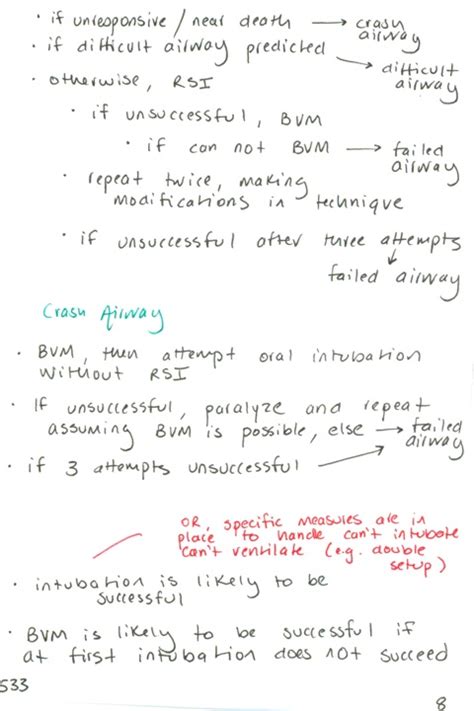 · if unresponsive / near death → crash
airway
· if difficult airway predicted
→ difficult
airway
· otherwise, RSI
· if unsuccessful, BVM
· if can not BVM → failed
airway
· repeat twice, making
modifications in technique
· if unsuccessful after three attempts
↓
failed airway
Crash Airway
· BVM, then attempt oral intubation
without RSI
· If unsuccessful, paralyze and repeat
assuming BVM is possible, else → failed
airway
· if 3 attempts unsuccessful →
OR, specific measures are in
place to handle can't intubate
can't ventilate (e.g. double
setup)
· intubation is likely to be
successful
· BVM is likely to be successful if
at first intubation does not succeed
533
8